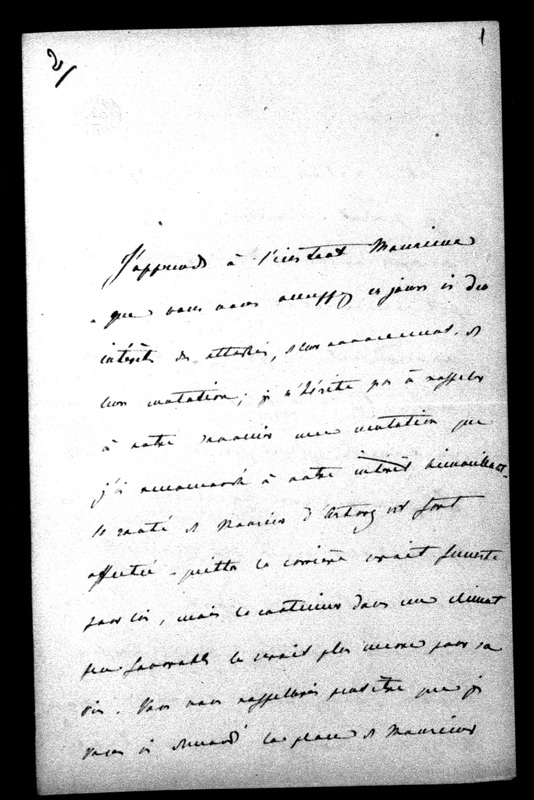 2/
1
J'apprends à l'instant Monsieur
que vous vous occupez ces jours ci des
intérêts des attachés, de leur avancement, de
leur mutation ; je n'hésite pas à rappeler
à votre souvenir une mutation que
j'ai recommandé à votre intérêt bienveillant.
la santé de Monsieur d' est fort
affectée - quitter la carrière serait funeste
pour lui, mais la continuer dans un climat
peu favorable le serait plus encore pour sa
vie. Vous vous rappellerez peut être que je
vous ai demandé la place de Monsieur